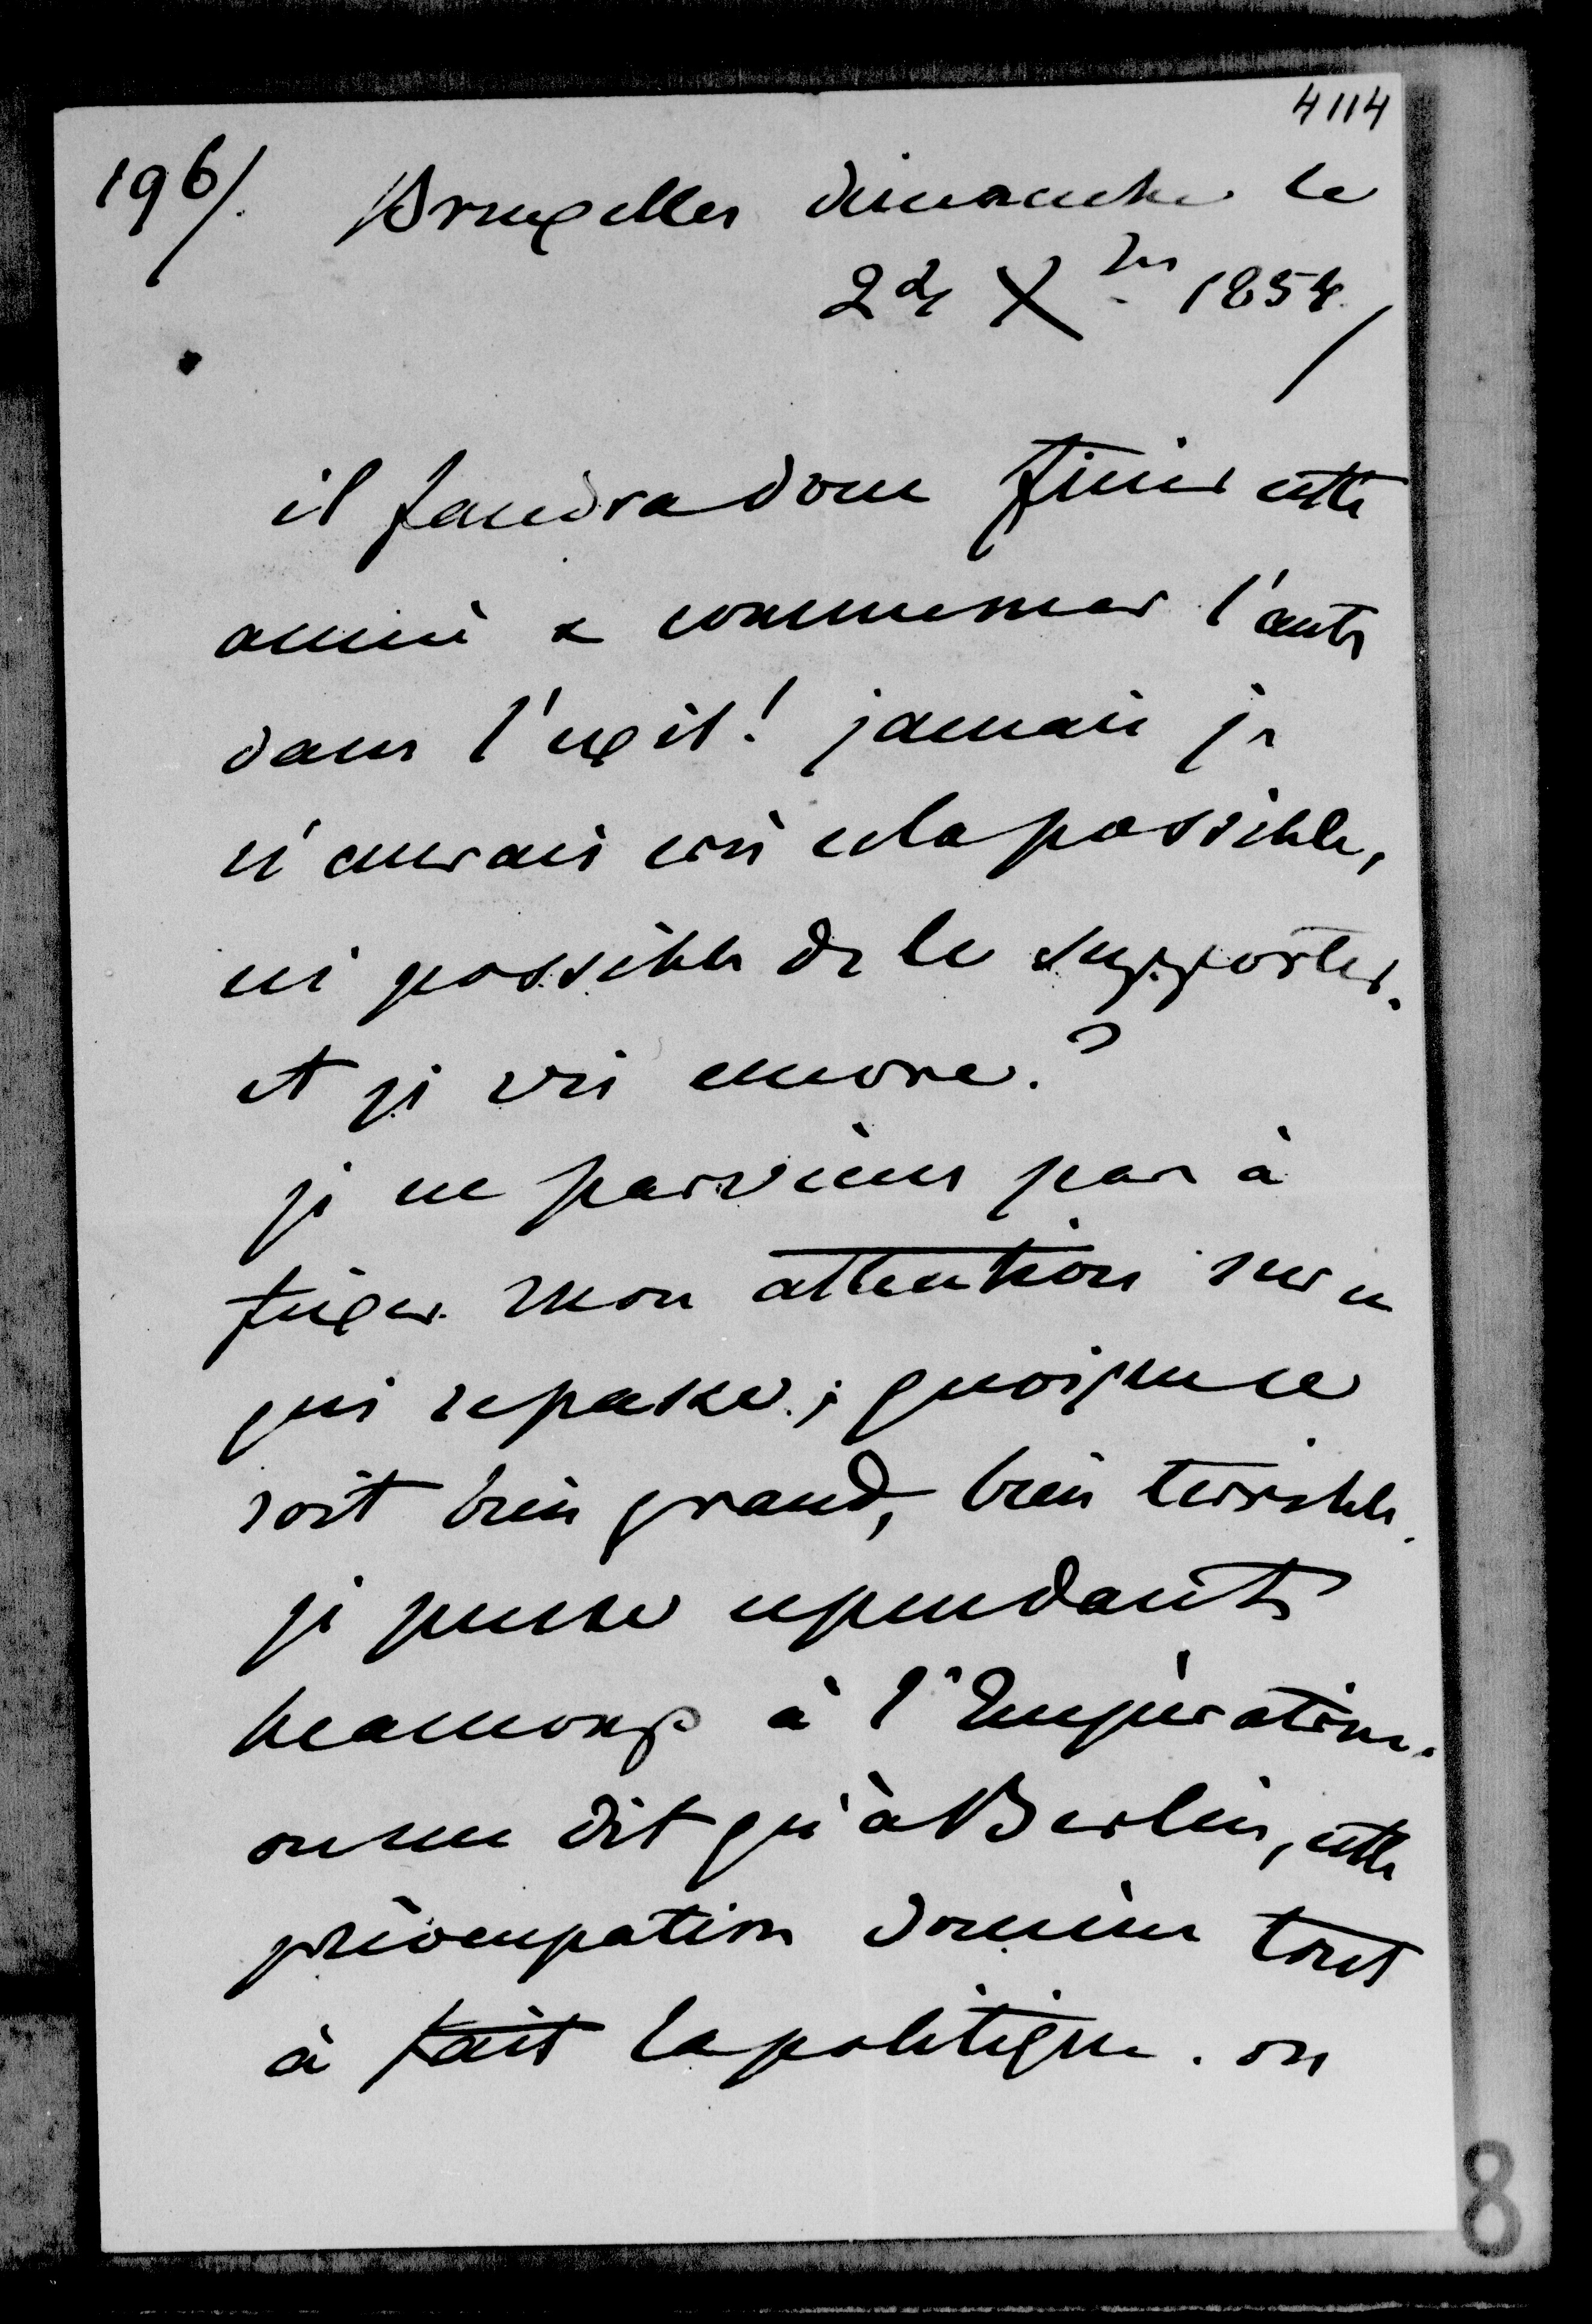 4114
196/. Bruxelles dimanche le
24 Xbre 1854.
il faudra donc finir cette
année & commencer l'autre
dans l'exil! jamais je
n'aurais crû cela possible,
ni possible de le supporter.
et je vis encore?
je ne parviens pas à
fixer mon attention sur ce
qui se passe; quoique ce
soit bien grand, bien terrible.
je pense cependant
beaucoup à l'Impératrice.
on me dit qu'à Berlin, cette
préoccupation domine tout
à fait la politique. on
8